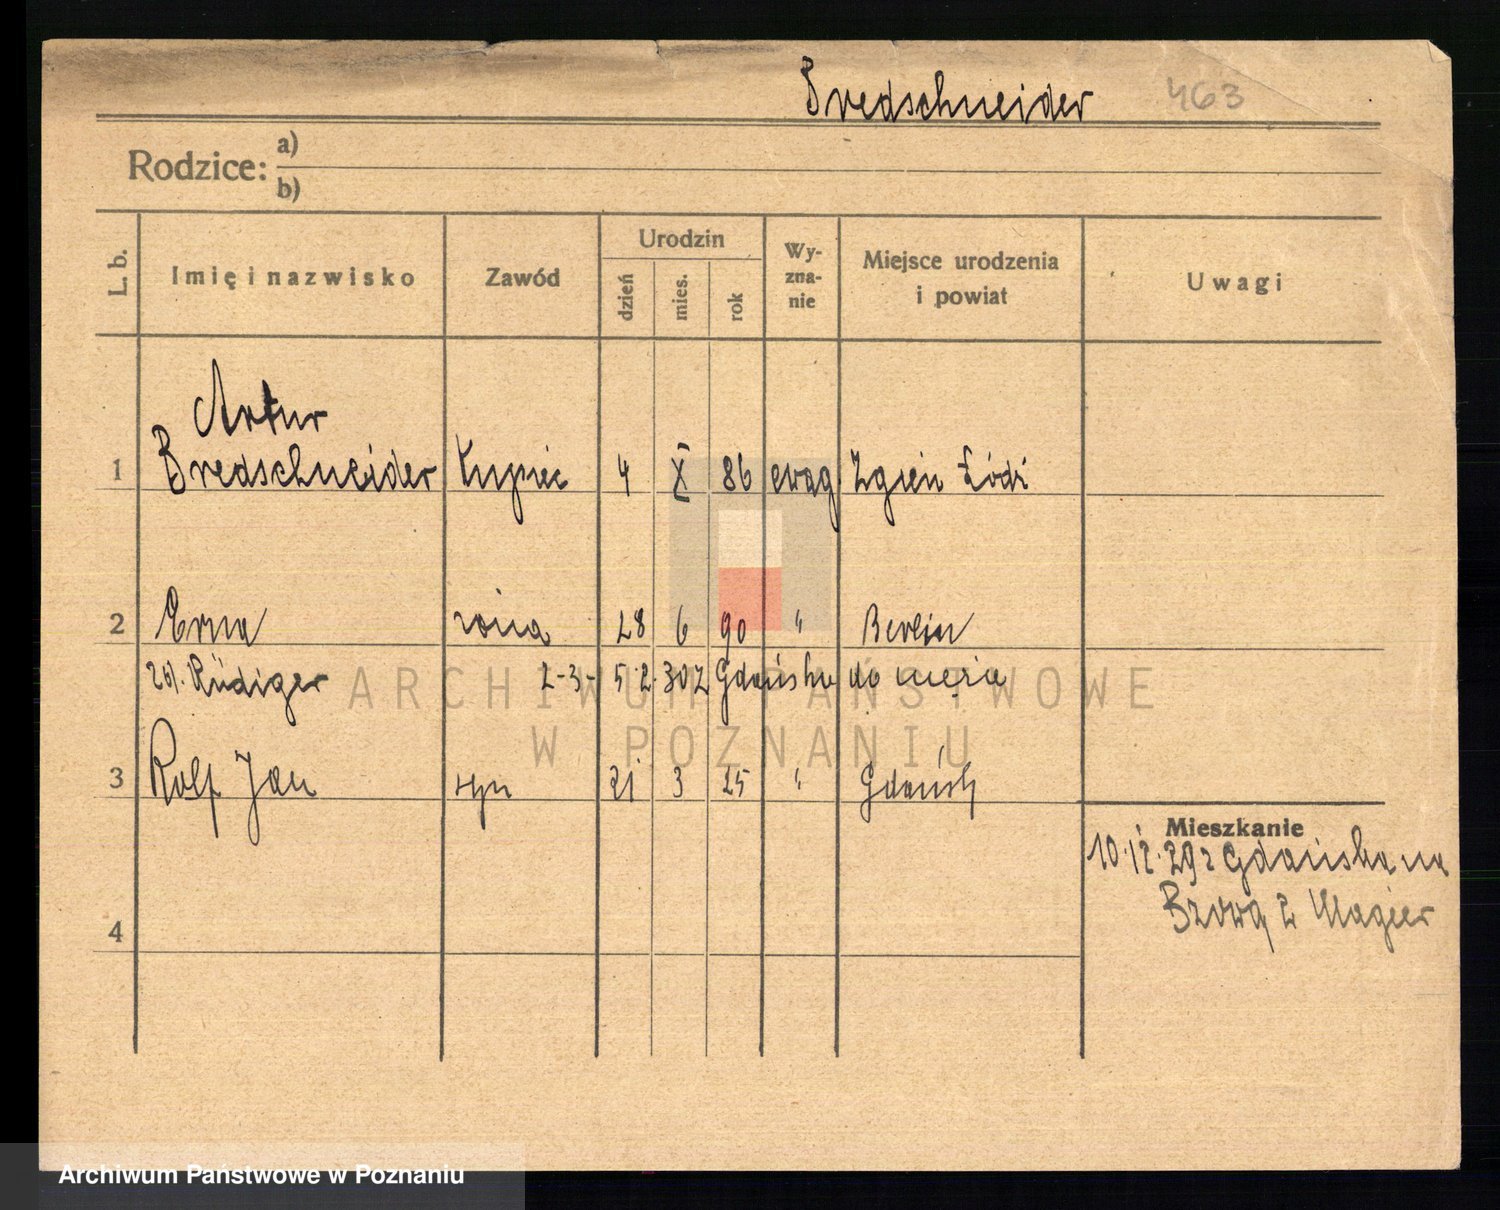 Bredschneider 463
Rodzice: a)
b)
L. b. Imię i nazwisko Zawód Urodzin dzień mies. rok Wy-zna-nie Miejsce urodzenia i powiat Uwagi
Artur
1 Bredschneider Kupiec 4 X 86 ewag Zgierz Łódź
2 Erna żona 28 6 90 " Berlin
Rüdiger 2-3- 5.2.30 z Gdańska do męża
ARCHIWUM PAŃSTWOWE
W POZNANIU
3 Rolf Jan syn 21 3 25 " Gdańsk
Mieszkanie
10.12.29 z Gdańska na
4 Brową 2 Magier
Archiwum Państwowe w Poznaniu